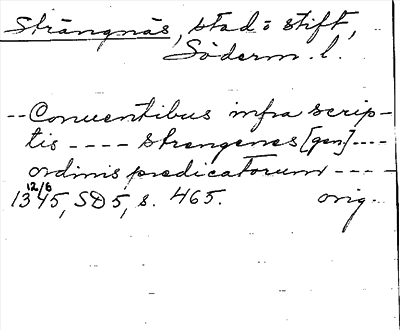 Strängnäs, stad o stift,
Söderm. l.
-- Conuentibus infra scrip-
tis ---- strengenes [gen] ----
ordinis predicatorum ----
12/6
1345, SD 5, s. 465. orig.